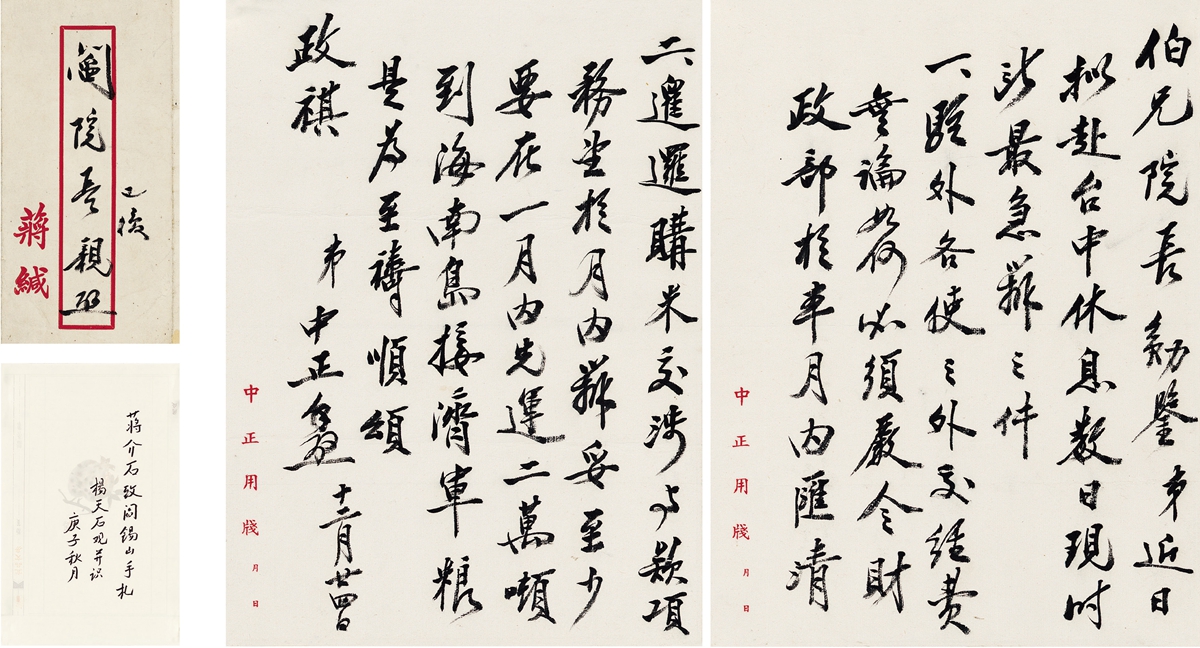 伯兄院長勛鑒弟近日
擬赴台中休息数日現时
所最急辦之件
一駐外各使之外交經费
無論如何必須嚴令財
政部於本月内匯清
中正用牋 月 日
二暹邏購米交涉与款項
務望於月内辦妥至少
要在一月内先運二萬噸
到海南島接濟軍粮
是為至禱順頌
政祺
弟中正
十二月廿四日
中正用牋 月 日
已復
閻院長親啓
蔣緘
蔣介石致閻錫山手札
楊天石观并识
庚子秋月